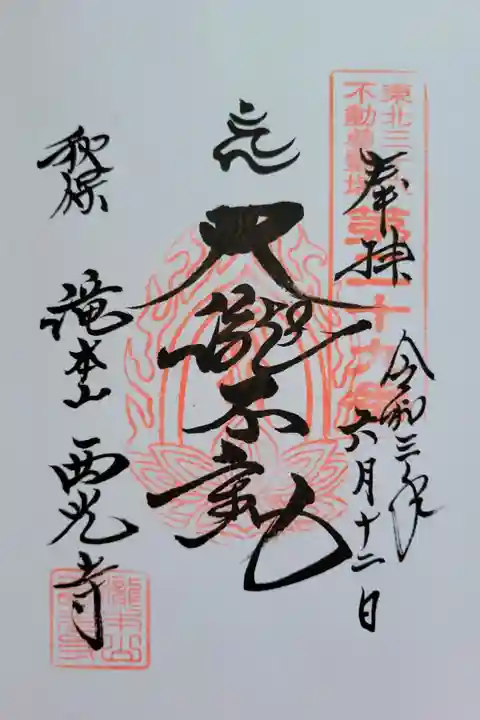 奉拝
令和三年
六月十二日
東北三十六
不動尊霊場
第二十六番
大瀧不動
秋保 滝本山 西光寺
瀧本山
西光寺